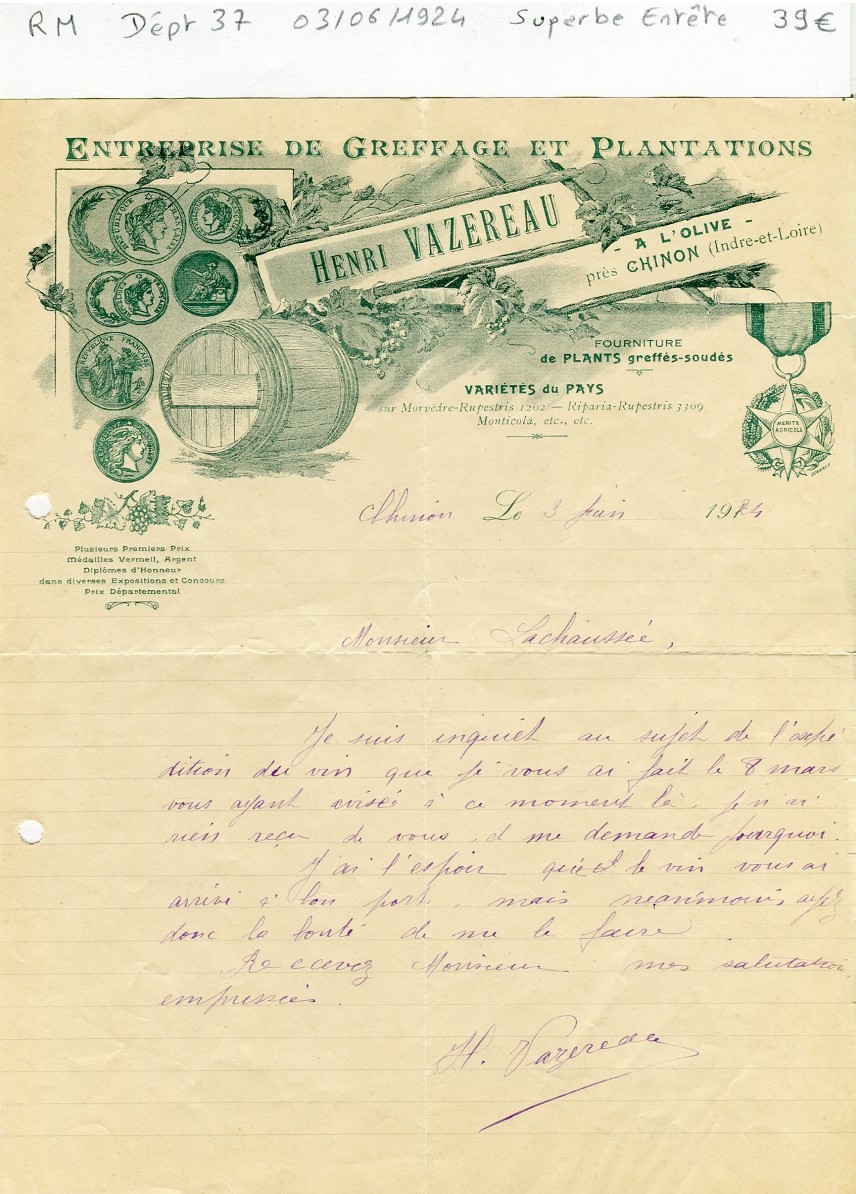 RM Dépt 37 03/06/1924 Superbe Entête 39€
ENTREPRISE DE GREFFAGE ET PLANTATIONS
HENRI VAZEREAU
- A L'OLIVE -
près CHINON (Indre-et-Loire)
FOURNITURE
de PLANTS greffés-soudés
VARIÉTÉS du PAYS
sur Morvèdre-Rupestris 1202 — Riparia-Rupestris 3309
Monticola, etc., etc.
MERITE
AGRICOLE
REPUBLIQUE FRANÇAISE
Chinon Le 3 juin 1924
Plusieurs Premiers Prix
Médailles Vermeil, Argent
Diplômes d'Honneur
dans diverses Expositions et Concours
Prix Départemental
Monsieur Lachaussée,
Je suis inquiet au sujet de l'expé
dition du vin que je vous ai fait le 8 mars
vous ayant avisé à ce moment là, je n'ai
rien reçu de vous, et me demande pourquoi.
J'ai l'espoir que le vin vous ai
arrivé à bon port, mais néanmoins ayez
donc la bonté de me le faire
Recevez Monsieur mes salutation
empressées.
H. Vazereau